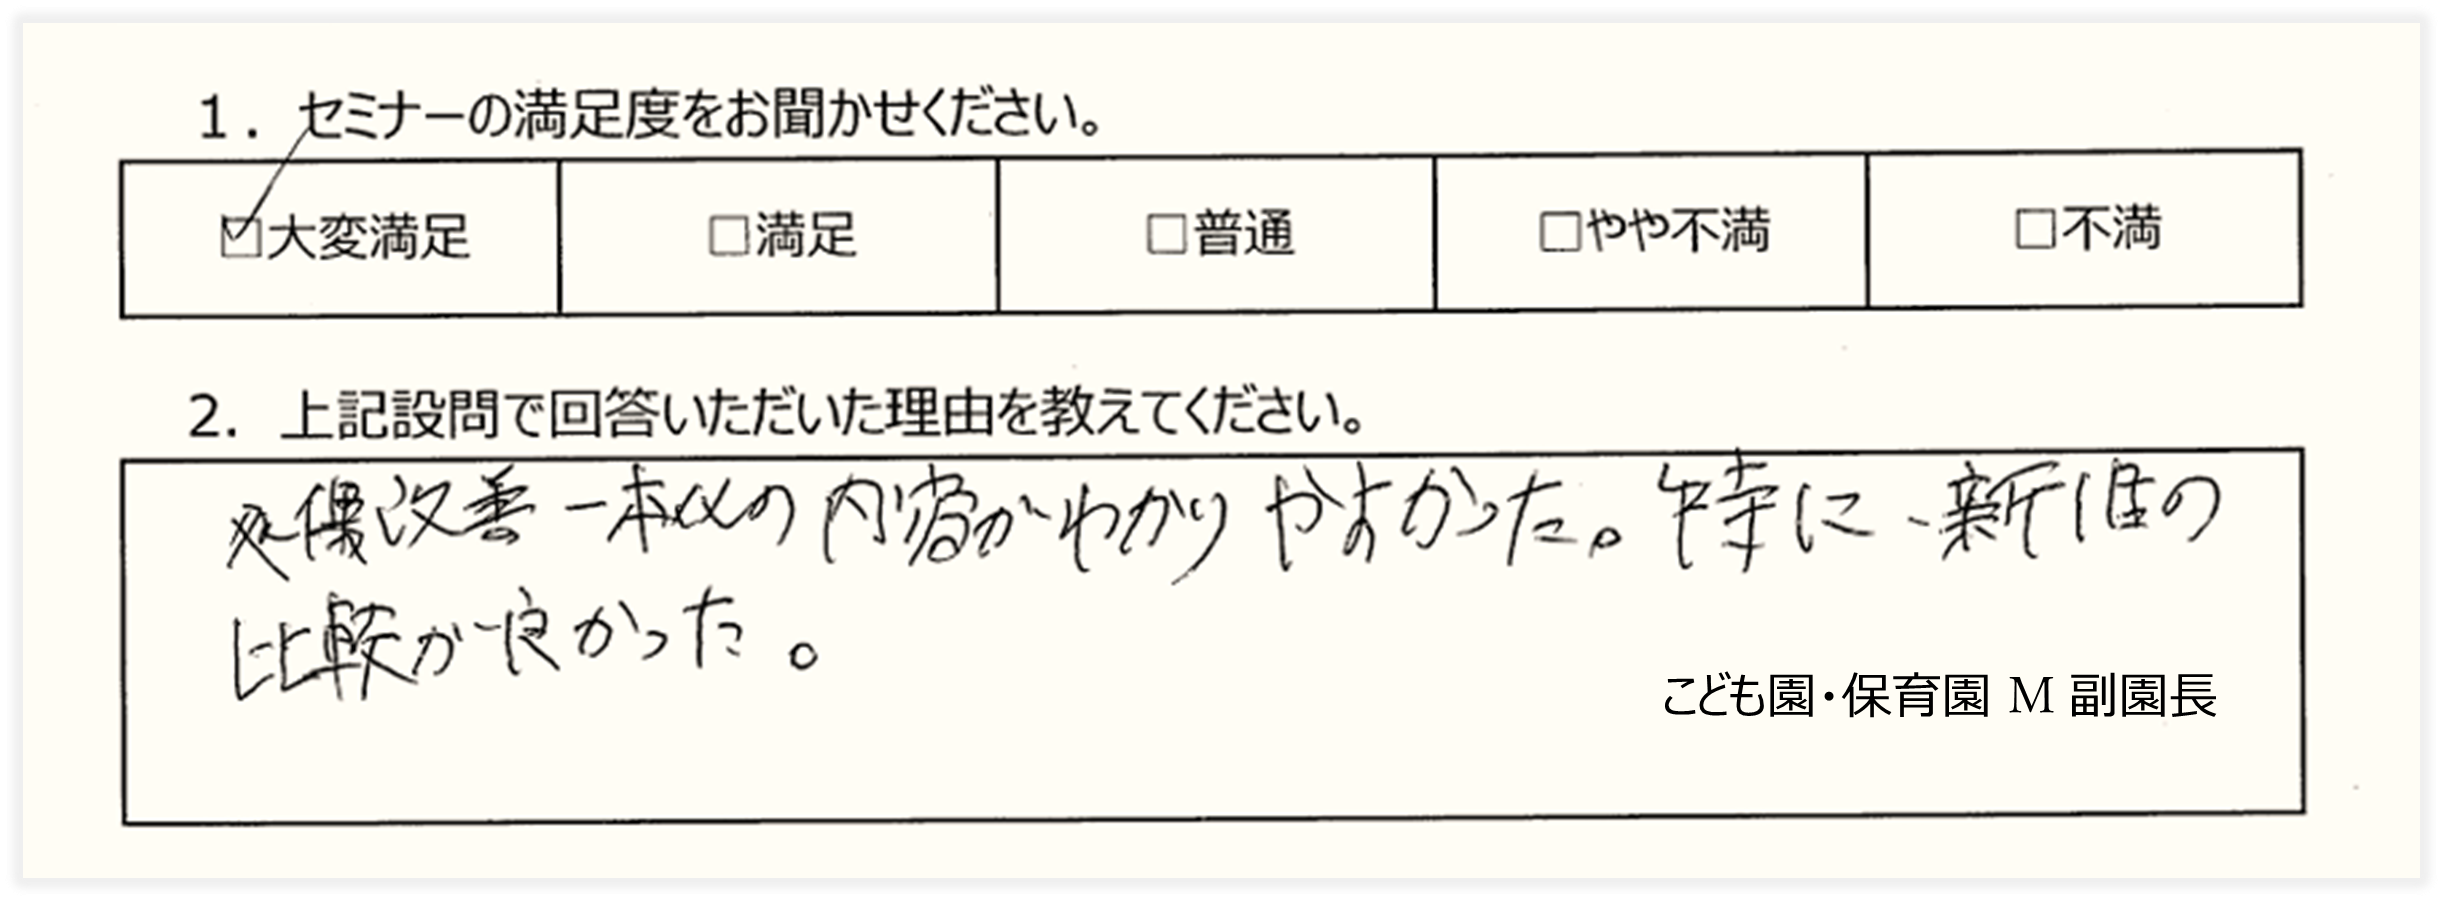 1. セミナーの満足度をお聞かせください。
☑大変満足 □満足 □普通 □やや不満 □不満
2. 上記設問で回答いただいた理由を教えてください。
処遇改善一本化の内容がわかりやすかった。特に、新旧の
比較が良かった。
こども園・保育園 M 副園長